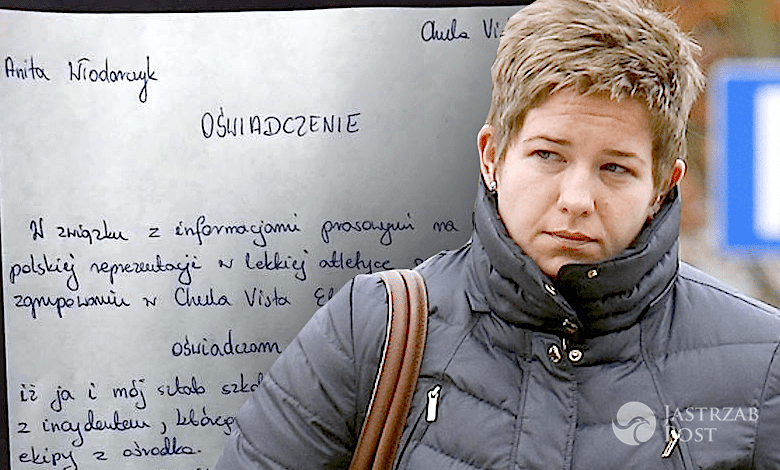 Chula Vis
Anita Włodarczyk
OŚWIADCZENIE
W związku z informacjami prasowymi na
polskiej reprezentacji w lekkiej atletyce
zgrupowaniu w Chula Vista
oświadczam
iż ja i mój sztab szko
z incydentem, które
ekipy z ośrodka.
JASTRZĄB
POST